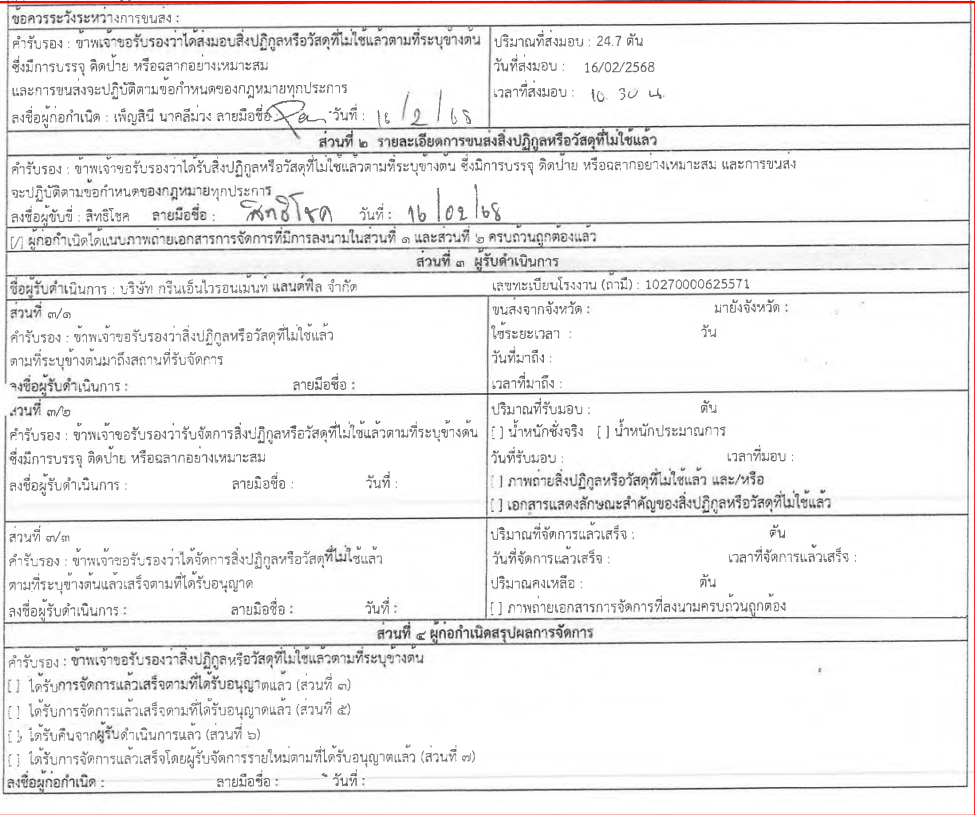 ข้อควรระวังระหว่างการขนส่ง :
คำรับรอง : ข้าพเจ้าขอรับรองว่าได้ส่งมอบสิ่งปฏิกูลหรือวัสดุที่ไม่ใช้แล้วตามที่ระบุข้างต้น
ซึ่งมีการบรรจุ ติดป้าย หรือฉลากอย่างเหมาะสม
และการขนส่งจะปฏิบัติตามข้อกำหนดของกฎหมายทุกประการ
ลงชื่อผู้ก่อกำเนิด : เพ็ญสินี นาคลีม่วง ลายมือชื่อ : วันที่ : 16/2/68
ปริมาณที่ส่งมอบ : 24.7 ตัน
วันที่ส่งมอบ : 16/02/2568
เวลาที่ส่งมอบ : 10.30 น.
ส่วนที่ ๒ รายละเอียดการขนส่งสิ่งปฏิกูลหรือวัสดุที่ไม่ใช้แล้ว
คำรับรอง : ข้าพเจ้าขอรับรองว่าได้รับสิ่งปฏิกูลหรือวัสดุที่ไม่ใช้แล้วตามที่ระบุข้างต้น ซึ่งมีการบรรจุ ติดป้าย หรือฉลากอย่างเหมาะสม และการขนส่ง
จะปฏิบัติตามข้อกำหนดของกฎหมายทุกประการ
ลงชื่อผู้ขับขี่ : สิทธิโชค ลายมือชื่อ : สิทธิโชค วันที่ : 16/02/68
[/] ผู้ก่อกำเนิดได้แนบภาพถ่ายเอกสารการจัดการที่มีการลงนามในส่วนที่ ๑ และส่วนที่ ๒ ครบถ้วนถูกต้องแล้ว
ส่วนที่ ๓ ผู้รับดำเนินการ
ชื่อผู้รับดำเนินการ : บริษัท กรีนเอ็นไวรอนเม้นท์ แลนด์ฟิล จำกัด
เลขทะเบียนโรงงาน (ถ้ามี) : 10270000625571
ส่วนที่ ๓/๑
คำรับรอง : ข้าพเจ้าขอรับรองว่าสิ่งปฏิกูลหรือวัสดุที่ไม่ใช้แล้ว
ตามที่ระบุข้างต้นมาถึงสถานที่รับจัดการ
ลงชื่อผู้รับดำเนินการ : ลายมือชื่อ :
ขนส่งจากจังหวัด : มายังจังหวัด :
ใช้ระยะเวลา : วัน
วันที่มาถึง :
เวลาที่มาถึง :
ส่วนที่ ๓/๒
คำรับรอง : ข้าพเจ้าขอรับรองว่ารับจัดการสิ่งปฏิกูลหรือวัสดุที่ไม่ใช้แล้วตามที่ระบุข้างต้น
ซึ่งมีการบรรจุ ติดป้าย หรือฉลากอย่างเหมาะสม
ลงชื่อผู้รับดำเนินการ : ลายมือชื่อ : วันที่ :
ปริมาณที่รับมอบ : ตัน
[ ] น้ำหนักชั่งจริง [ ] น้ำหนักประมาณการ
วันที่รับมอบ : เวลาที่มอบ :
[ ] ภาพถ่ายสิ่งปฏิกูลหรือวัสดุที่ไม่ใช้แล้ว และ/หรือ
[ ] เอกสารแสดงลักษณะสำคัญของสิ่งปฏิกูลหรือวัสดุที่ไม่ใช้แล้ว
ส่วนที่ ๓/๓
คำรับรอง : ข้าพเจ้าขอรับรองว่าได้จัดการสิ่งปฏิกูลหรือวัสดุที่ไม่ใช้แล้ว
ตามที่ระบุข้างต้นแล้วเสร็จตามที่ได้รับอนุญาต
ลงชื่อผู้รับดำเนินการ : ลายมือชื่อ : วันที่ :
ปริมาณที่จัดการแล้วเสร็จ : ตัน
วันที่จัดการแล้วเสร็จ : เวลาที่จัดการแล้วเสร็จ :
ปริมาณคงเหลือ : ตัน
[ ] ภาพถ่ายเอกสารการจัดการที่ลงนามครบถ้วนถูกต้อง
ส่วนที่ ๔ ผู้ก่อกำเนิดสรุปผลการจัดการ
คำรับรอง : ข้าพเจ้าขอรับรองว่าสิ่งปฏิกูลหรือวัสดุที่ไม่ใช้แล้วตามที่ระบุข้างต้น
[ ] ได้รับการจัดการแล้วเสร็จตามที่ได้รับอนุญาตแล้ว (ส่วนที่ ๓)
[ ] ได้รับการจัดการแล้วเสร็จตามที่ได้รับอนุญาตแล้ว (ส่วนที่ ๕)
[ ] ได้รับคืนจากผู้รับดำเนินการแล้ว (ส่วนที่ ๖)
[ ] ได้รับการจัดการแล้วเสร็จโดยผู้รับจัดการรายใหม่ตามที่ได้รับอนุญาตแล้ว (ส่วนที่ ๗)
ลงชื่อผู้ก่อกำเนิด : ลายมือชื่อ : วันที่ :